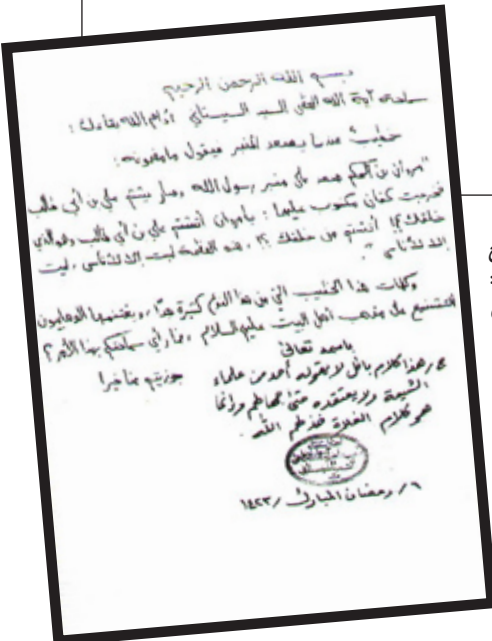 بسم الله الرحمن الرحيم
سماحة آية الله العظمى السيد السيستاني أدام الله بقاءك :
خطيب عندما يصعد المنبر فيقول ما مضمونه :
"مروان بن الحكم صعد على منبر رسول الله وصار يشتم علي بن أبي طالب
فخرجت كفان مكتوب عليها : يا مروان أتشتم علي بن أبي طالب وهو الذي
خلقك ؟! أتشتم من خلقك ؟! ، هذه القضية ليست
وكلمات هذا الخطيب التي من هذا النوع كثيرة جداً ، ويغتنمها الوهابيون
للتشنيع على مذهب أهل البيت عليهم السلام ، فما رأي سماحتكم بهذا الأمر ؟
جوزيتم خيرا
باسمه تعالى
ج / هذا كلام باطل لا يقوله أحد من علماء
الشيعة ولا يعتقده حتى جهالهم وإنما
هو كلام الغلاة خذلهم الله
٦/ رمضان المبارك /١٤٢٣